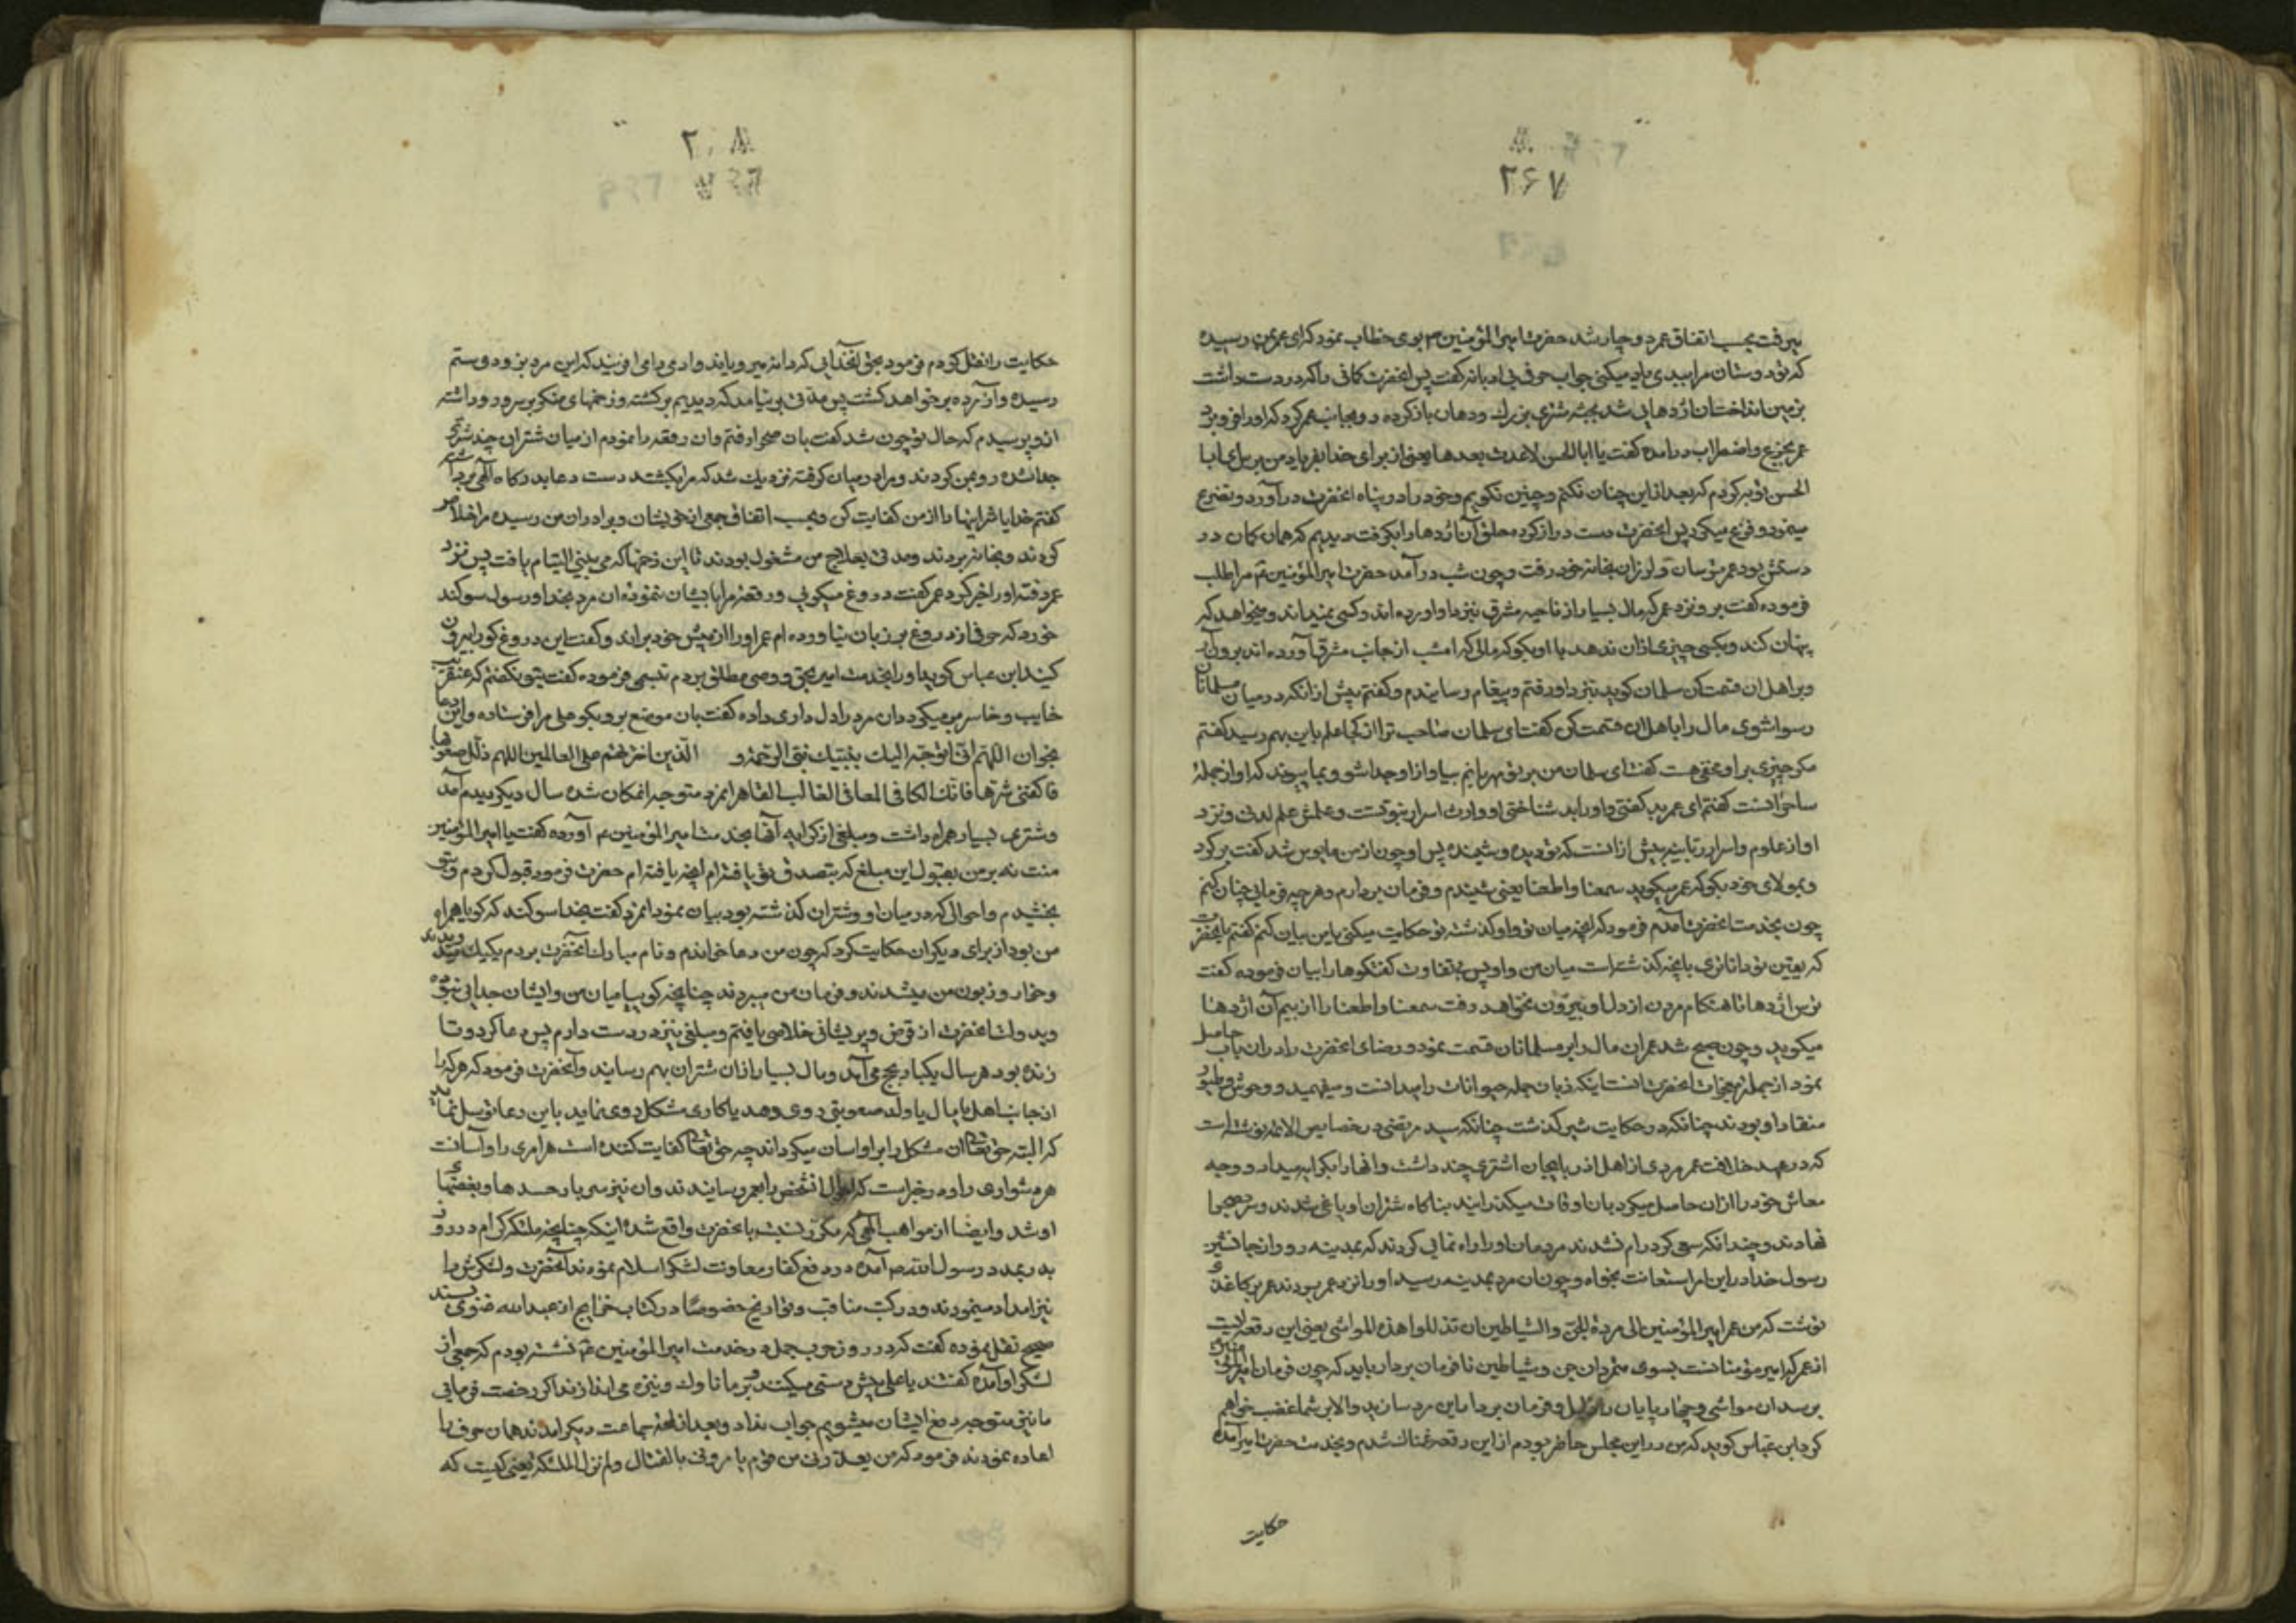 ۲۶۷
میرفت بحسب اتفاق عمر دوچار شد حضرت امیر المؤمنین بوی خطاب نمود که ای عمر بمن رسیده
که تو دوستان مرا ببدی یاد میکنی جواب حرف بی ادبانه گفت پس انحضرت کمانی را که در دست داشت
بزمین انداخت ان اژدهایی شد بجثه شتری بزرك ودهان باز کرده رو بجانب عمر کرد که او را فرو برد
عمر بجزع واضطراب درامده گفت یا ابا الحسن لاعدت بعدها یعنی از برای خدا بفریاد من برس ای ابا
الحسن توبه کردم که بعد از این چنان نکنم وچنین نکویم وخود را در پناه انحضرت درآورد وتضرع
مینمود وفزع میکرد پس انحضرت دست دراز کرده حلق آن اژدها را بکرفت دیدیم که همان کمان در
دستش بود عمر ترسان ولرزان بخانه خود رفت وچون شب درآمد حضرت امیر المؤمنین مرا طلب
فرموده گفت برو نزد عمر که مال بسیار از ناحیه مشرق بنزد او اورده اند وکسی نمیداند ومیخواهد که
پنهان کند وبکسی چیزی ازان ندهد با او بکو که مالی که امشب از جانب مشرق آورده اند برون آر
وبر اهل ان قسمت کن سلمان کوید بنزد او رفتم وپیغام رسانیدم وگفتم پیش ازانکه در میان مسلمانان
رسوا شوی مال را باهل ان قسمت کن گفت ای سلمان صاحب ترا از کجا علم باین بهم رسید گفتم
مکر چیزی بر او مخفی هست گفت ای سلمان من بر تو مهربانم بیا و از او جدا شو وبما پیوند که او از جمله
ساحرانست گفتم ای عمر بد گفتی واو را بد شناختی او وارث اسرار نبوتست وعلمش علم لدنی ونزد
او از علوم واسرار ربانیه بیش ازانست که تو دیده وشنیده پس او چون از من مایوس شد گفت برکرد
وبمولای خود بکو که عمر میکوید سمعنا واطعنا یعنی شنیدم وفرمان بردارم وهر چه فرمایی چنان کنم
چون بخدمت انحضرت آمدم فرمود که انچه میان تو واو کذشته تو حکایت میکنی یا من بیان کنم گفتم یا حضرت
که یقین تو داناتری بانچه کذشته است میان من واو پس بی تفاوت گفتکوها را بیان فرموده گفت
ترس اژدها تا هنکام مردن از دل او بیرون نخواهد رفت سمعنا واطعنا را از بیم آن اژدها
میکوید وچون صبح شد عمر ان مال را بر مسلمانان قسمت نمود ورضای انحضرت را دران باب حاصل
نمود از جمله معجزات انحضرت انست اینکه زبان جمله حیوانات را میدانست ومیفهمید ووحوش وطیور
منقاد او بودند چنانکه در حکایت شیر کذشت چنانکه سید مرتضی در خصایص الائمه نوشته است
که در عهد خلافت عمر مردی از اهل اذربایجان اشتری چند داشت وانها را بکرایه میداد ووجه
معاش خود را ازان حاصل میکرد وبان اوقات میکذرانید بناکاه شتران او یاغی شدند وسر بصحرا
نهادند وچندانکه سعی کرد رام نشدند مردمان او را راه نمایی کردند که بمدینه رو واز جانشین
رسول خدا در این امر استعانت بخواه وچون ان مرد بمدینه رسید او را نزد عمر بردند عمر بر کاغذ
نوشت که من عمر امیر المؤمنین الی مردة الجن والشیاطین ان تذللوا هذه المواشی یعنی این رقعه ایست
از عمر که امیر مؤمنانست بسوی متمردان جن وشیاطین نافرمان بردار باید که چون فرمان امیر المؤمنین
برسد ان مواشی وچهارپایان را ذلیل وفرمان بردار این مرد سازید والا بر شما غضب خواهم
کرد ابن عباس کوید که من در این مجلس حاضر بودم از این رقعه غمناك شدم وبخدمت حضرت امیر آمده
حکایت
حکایت را نقل کردم فرمود بحق انخدایی که دانه میرویاند وادمی را می افریند که این مرد بزودی ستم
رسیده وآزرده برخواهد کشت پس مدتی برنیامد که دیدیم برکشته وزخمهای منکر بر سر ورو داشته
ازو پرسیدم که حال تو چون شد گفت بان صحرا رفتم وان رقعه را نمودم از میان شتران چند شتری
جدا شده رو بمن کردند ومرا در میان کرفته نزدیك شد که مرا بکشند دست دعا بدرکاه الهی برداشته
گفتم خدایا شر اینها را از من کفایت کن وبحسب اتفاق جمعی از خویشان وبرادران من رسیده مرا خلاص
کردند وبخانه بردند ومدتی بعلاج من مشغول بودند تا این زخمها که می بینی التیام یافت پس نزد
عمر رفته او را خبر کرد عمر گفت دروغ میکویی ورقعه مرا بایشان ننموده ان مرد بخدا ورسول سوکند
خورد که حرفی از دروغ بر زبان نیاورده ام عمر او را از پیش خود براند وگفت این دروغ کو را بیرون
کنید ابن عباس کوید او را بخدمت امیر بحق ووصی مطلق بردم تبسمی فرموده گفت بتو نکفتم که عنقریب
خایب وخاسر برمیکردد ان مرد را دل داری داده گفت بان موضع برو وبکو علی مرا فرستاده واین دعا
بخوان اللهم انی اتوجه الیك بنبیك نبی الرحمة و الذین اخترتهم علی العالمین اللهم ذلل صعوبتها
فاکفنی شرها فانك الکافی المعافی الغالب القاهر انمرد متوجه انمکان شده سال دیکر دیدم آمد
وشتری بسیار همراه داشت ومبلغی از کرایه آنها بخدمت امیر المؤمنین آورده گفت یا امیر المؤمنین
منت نه بر من بقبول این مبلغ که بتصدق تو یافته ام انچه یافته ام حضرت فرمود قبول کردم وبتو
بخشیدم واحوالی که در میان او وشتران کذشته بود بیان نمود انمرد گفت بخدا سوکند که کویا همراه
من بود از برای دیکران حکایت کرد که چون من دعا خواندم ونام مبارك انحضرت بردم یکیك میدویدند
وخوار وزبون من میشدند وفرمان من میبردند چنانچه کویا میان من وایشان جدایی نبوده
وبدولت انحضرت از قرض وپریشانی خلاصی یافتم ومبلغی نیز در دست دارم پس دعا کرد وتا
زنده بود هر سال یکبار بحج می آمد ومال بسیار ازان شتران بهم رسانید وآنحضرت فرمود که هرکه را
از جانب اهل یا مال یا ولد صعوبتی روی دهد یا کاری مشکل روی نماید باین دعا توسل نماید
که البته حق تعالی ان مشکل را بر او اسان میکرداند چه حق تعالی کفایت کننده است هر امری را وآسانست
هر دشواری را ودر خبر است که احوال انشخص را بعمر رسانیدند وان نیز سربار حسدها وبغضهای
او شد وایضا از مواهب الهی که مکرر نسبت بانحضرت واقع شده اینکه چنانچه ملئکه کرام در روز
بدر بمدد رسول الله آمده در دفع کفار معاونت لشکر اسلام نمودند آنحضرت ولشکرش را
نیز امداد مینمودند ودر کتب مناقب وتواریخ خصوصا در کتاب خرایج از عبد الله غنوی بسند
صحیح نقل نموده گفت که در روز حرب جمل در خدمت امیر المؤمنین نشسته بودم که جمعی از
لشکر او آمده گفتند یا علی پیش دستی میکنند وبر ما ناوك ونیزه می اندازند اکر رخصت فرمایی
ما نیز متوجه دفع ایشان میشویم جواب نداد وبعد از لحظه جماعت دیکر امدند همان حرف را
اعاده نمودند فرمود که من یعذرنی من قوم یامرونی بالقتال ولم تنزل الملئکة یعنی کیست که